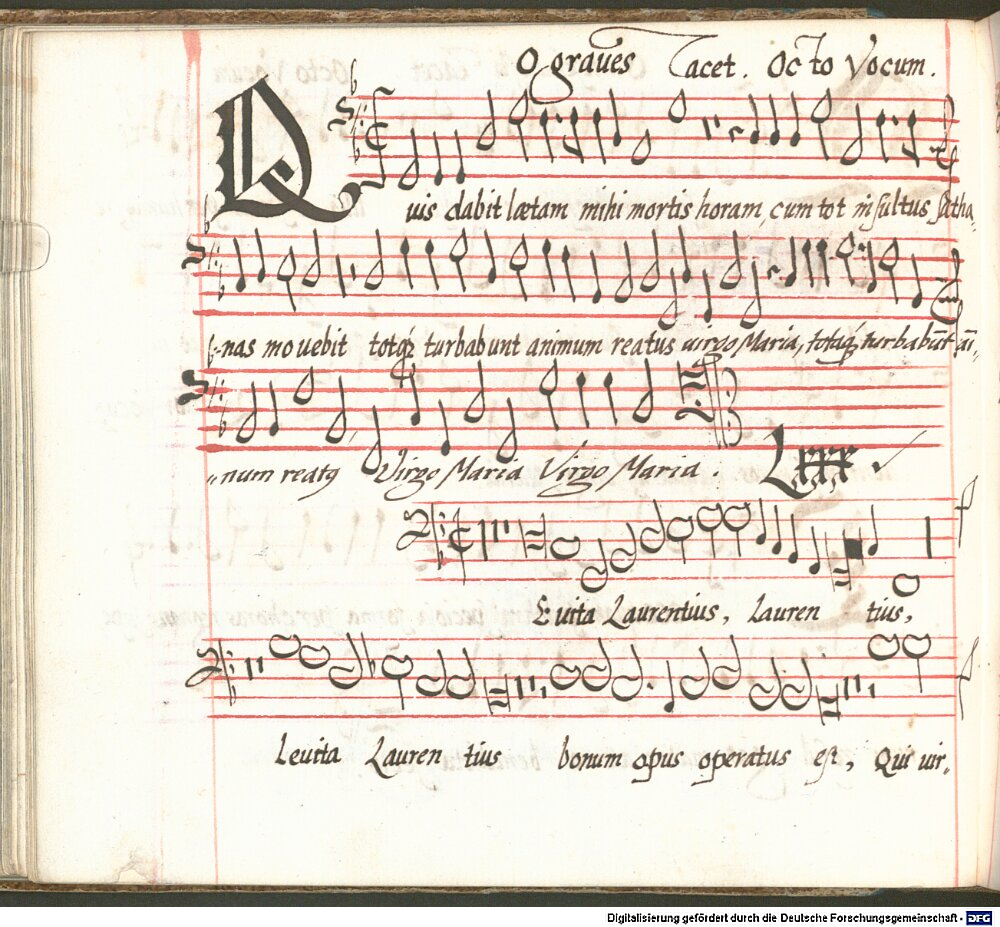 O graues Tacet. Octo Vocum.
Quis dabit lætam mihi mortis horam, cum tot insultus satha„
„nas mouebit totq; turbabunt animum reatus uirgo Maria, totq; turbabūt ai„
„num reatq Virgo Maria Virgo Maria.
Lxxx
Leuita Laurentius, lauren tius,
Leuita Lauren tius bonum opus operatus est, Qui uir„
Digitalisierung gefördert durch die Deutsche Forschungsgemeinschaft - DFG